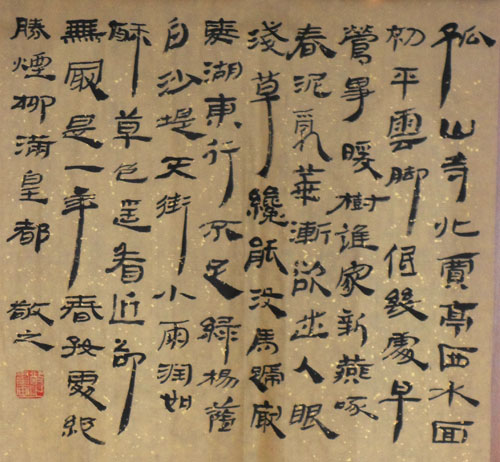 孤山寺北賈亭西水面
初平雲脚低幾處早
鶯爭暖樹誰家新燕啄
春泥亂華漸欲迷人眼
淺草纔能没馬蹄最
愛湖東行不足緑楊蔭
白沙堤天街小雨潤如
酥草色遥看近却
無最是一年春好處絶
勝煙柳滿皇都 敬之